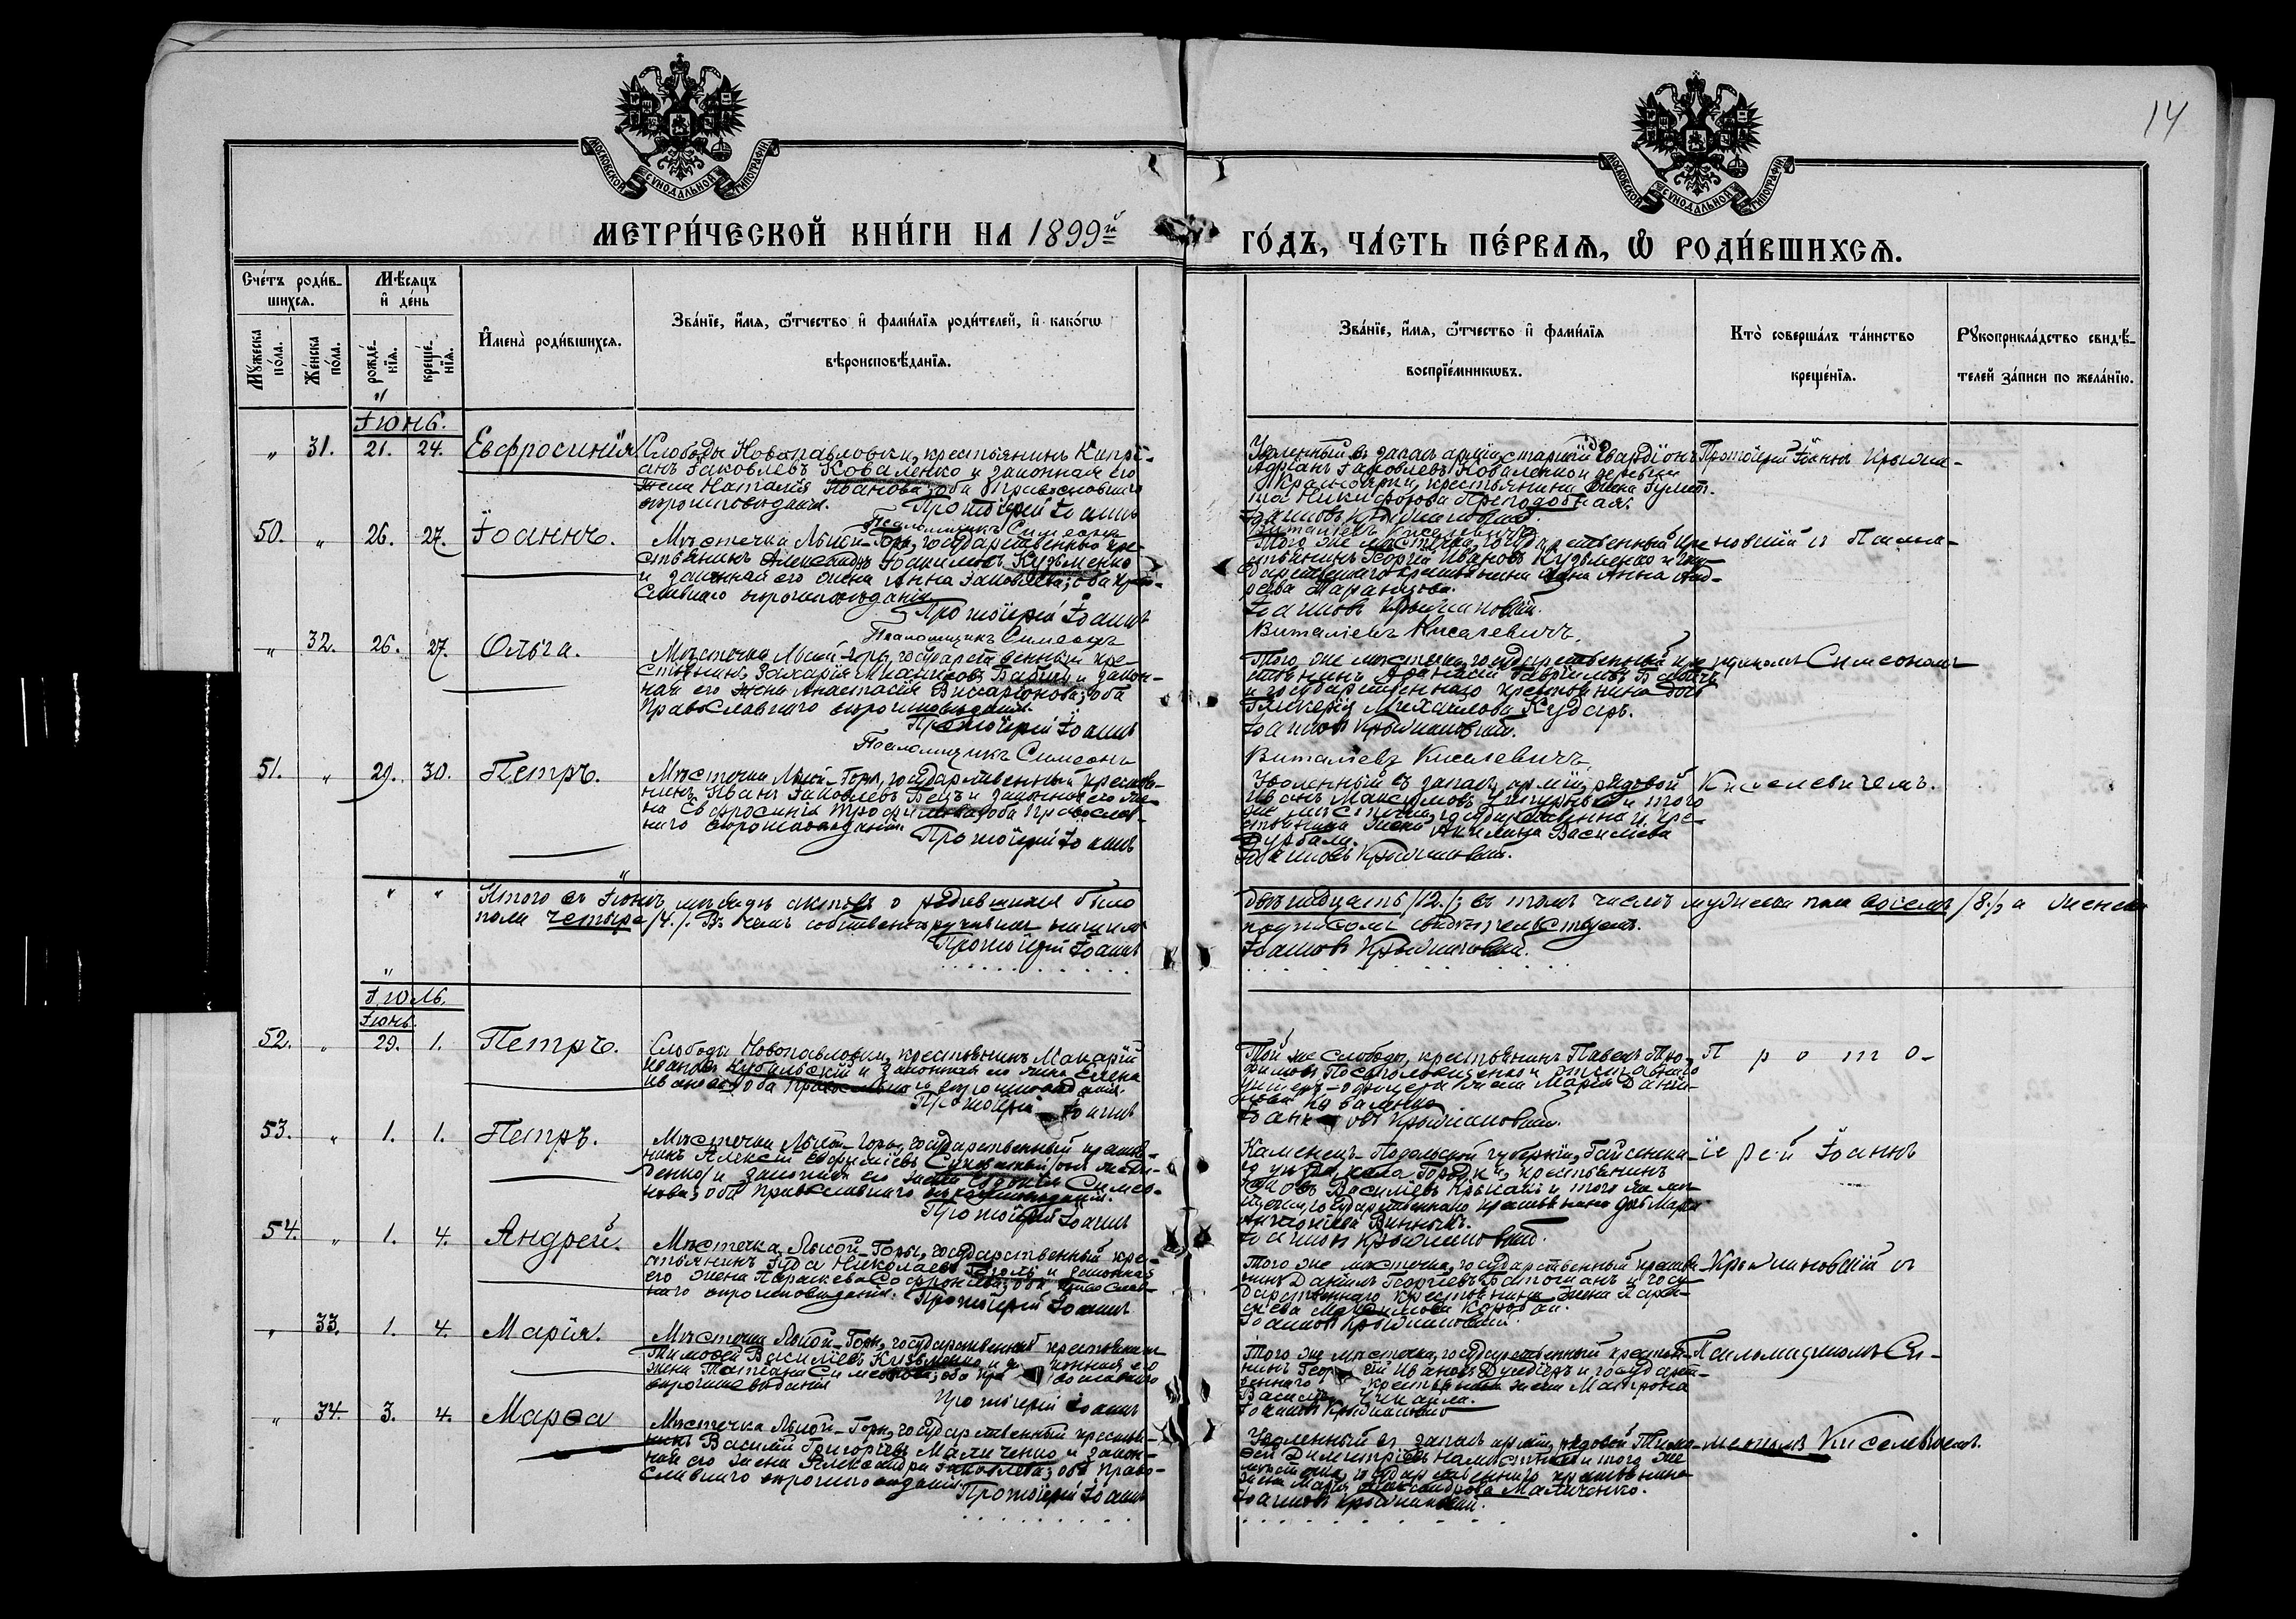 14
МОСКОВСКОЙ СѴНОДАЛЬНОЙ ТИПОГРАФІИ
МОСКОВСКОЙ СѴНОДАЛЬНОЙ ТИПОГРАФІИ
МЕТРИ́ЧЕСКОЙ КНИ́ГИ НА 1899й
ГО́ДЪ, ЧА́СТЬ ПЕ́РВАѦ, Ѡ҆ РОДИ́ВШИХСѦ.
Сче́тъ роди́в-
шихсѧ.
Мѣ́сѧцъ
и҆ де́нь
Мꙋ́жеска по́ла.
Же́нска по́ла.
рожде́-нїѧ.
креще́-нїѧ.
И҆мена̀ роди́вшихсѧ.
Зва́нїе, и҆́мѧ, ѻ҆́тчество и҆ фами́лїѧ роди́телей, и҆ како́гѡ
вѣроисповѣ́данїѧ.
Зва́нїе, и҆́мѧ, ѻ҆́тчество и҆ фами́лїѧ
воспрїе́мникѡвъ.
Кто̀ соверша́лъ та́инство
креще́нїѧ.
Рꙋкоприкла́дство свидѣ́-
телей за́писи по жела́нїю.
Іюнь.
„ 31. 21. 24. Евфросинія
Слободы Новопавловки, крестьянинъ Кипрі-
анъ Іаковлевъ Коваленко и законная его
жена Наталія Иванова; оба Православнаго
вѣроисповѣданія.
Протоіерей Іоаннъ
Псаломщикъ Симеонъ
Уволенный въ запасъ арміи старшій
Адріанъ Іаковлевъ Коваленко и деревни
крестьянина жена
Никифорова
Іоанновъ Крыжановскій.
Виталіевъ Киселевичъ
Протоіерей Іоаннъ Крыжа-
50. „ 26. 27. Іоаннъ.
Мѣстечка Лысой-Горы, государственный кре-
стьянинъ Александръ Іоакимовъ Кузьменко
и законная его жена Анна Іаковлева; оба Право-
славнаго вѣроисповѣданія
Протоіерей Іоаннъ
Псаломщикъ Симеонъ
Того же мѣстечка, государственный кре-
стьянинъ Георгій Ивановъ Кузьменко и госу-
дарственнаго крестьянина жена Анна Анд-
реева
Іоанновъ Крыжановскій.
Виталіевъ Киселевичъ
новскій съ Псалом-
„ 32. 26. 27. Ольга.
Мѣстечка Лысой-Горы, государственный кре-
стьянинъ Захарія Михайловъ Бабичъ и закон-
ная его жена Анастасія Виссаріонова; оба
Православнаго вѣроисповѣданія.
Протоіерей Іоаннъ
Псаломщикъ Симеонъ
Того же мѣстечка, государственный кре-
стьянинъ Афанасій Гавріиловъ Бабичъ
и государственнаго крестьянина дочь
Гликерія Михайлова Кударъ.
Іоанновъ Крыжановскій.
Виталіевъ Киселевичъ
щикомъ Симеономъ
51. „ 29. 30. Петръ.
Мѣстечка Лысой-Горы, государственный крестья-
нинъ Иванъ Іаковлевъ Бецъ и законная его же-
на Евфросинія Трофимова; оба Православ-
наго вѣроисповѣданія.
Протоіерей Іоаннъ
Уволенный въ запасъ арміи, рядовой
Иванъ Максимовъ и того
же мѣстечка, государственнаго кре-
стьянина жена Акилина Василіева
Іоанновъ Крыжановскій.
Киселевичемъ.
„ „ Итого въ Іюнѣ мѣсяцѣ актовъ о родившихся было
двѣнадцать /12./; въ томъ числѣ мужеска пола восемь /8./, а женска
пола четыре /4./. Въ чемъ собственноручнымъ нашимъ
подписомъ свидѣтельствуемъ.
Протоіерей Іоаннъ
Іоанновъ Крыжановскій.
Іюль.
Іюнь.
52. „ 29. 1. Петръ.
Слободы Новопавловки, крестьянинъ Макарій
Ивановъ Кубильскій и законная его жена Елена
Иванова; оба Православнаго вѣроисповѣданія.
Протоіерей Іоаннъ
Той же слободы, крестьянинъ Павелъ
и отставнаго
унтеръ-офицера жена Марія Данiи-
лова Коваленко
Іоанновъ Крыжановскій.
П р о т о-
53. „ 1. 1. Петръ.
Мѣстечка Лысой-Горы, государственный крестья-
нинъ Алексій Евфиміевъ
и законная его жена Симео-
нова; оба Православнаго вѣроисповѣданія.
Протоіерей Іоаннъ
Каменецъ-Подольской губерніи, Гайсинска-
го уѣзда, села крестьянинъ
Василіевъ и того же мѣ-
стечка, государственнаго крестьянина дочь Марія
Іоанновъ Крыжановскій.
іерей Іоаннъ
54. „ 1. 4. Андрей.
Мѣстечка Лысой-Горы, государственный кре-
стьянинъ Іуда Николаевъ и законная
его жена Параскева Софронова; оба Православ-
наго вѣроисповѣданія.
Протоіерей Іоаннъ
Того же мѣстечка, государственный крестья-
нинъ Даніилъ Георгіевъ и госу-
дарственнаго крестьянина жена Парас-
кева Максимова
Іоанновъ Крыжановскій.
Крыжановскій съ
„ 33. 1. 4. Марія.
Мѣстечка Лысой-Горы, государственный крестьянинъ
Тимофей Василіевъ Кузьменко и законная его
жена Татіана Симеонова; оба Православнаго
вѣроисповѣданія
Протоіерей Іоаннъ
Того же мѣстечка, государственный крестья-
нинъ Георгій Ивановъ и государст-
веннаго крестьянина жена Матрона
Іоанновъ Крыжановскій
Псаломщикомъ Си-
„ 34. 3. 4. Марѳа
Мѣстечка Лысой-Горы, государственный крестья-
нинъ Василій Григоріевъ Маличенко и закон-
ная его жена Александра Іаковлева; оба Право-
славнаго вѣроисповѣданія.
Протоіерей Іоаннъ
Уволенный въ запасъ арміи, рядовой Тимо-
фей Димитріевъ и того же
мѣстечка, государственнаго крестьянина
жена Марія Александрова Маличенко.
Іоанновъ Крыжановскій.
меономъ Киселевичемъ.